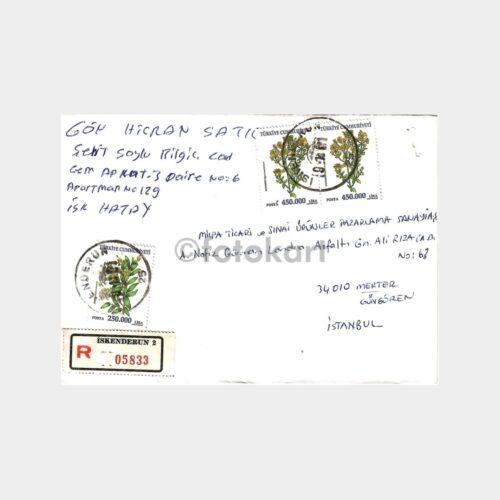 GÖN HİCRAN SATIC
Şehit Soylu Bilgic Cad
Cem AP Kat-3 Daire No:6
Apartman No 129
İSK HATAY
TÜRKİYE CUMHURİYETİ
POSTA 450.000 LİRA
TÜRKİYE CUMHURİYETİ
POSTA 450.000 LİRA
MİLPA TİCARİ ve SINAİ ÜRÜNLER PAZARLAMA SANAYİ
A. Nafiz Gürman Cad. Asfaltı Gn. Ali RIZA CAD.
No: 68
34010 MERTER
GÜNGÖREN
İSTANBUL
©fotokart
TÜRKİYE CUMHURİYETİ
POSTA 250.000 LİRA
İSKENDERUN
İSKENDERUN 2
R 05833